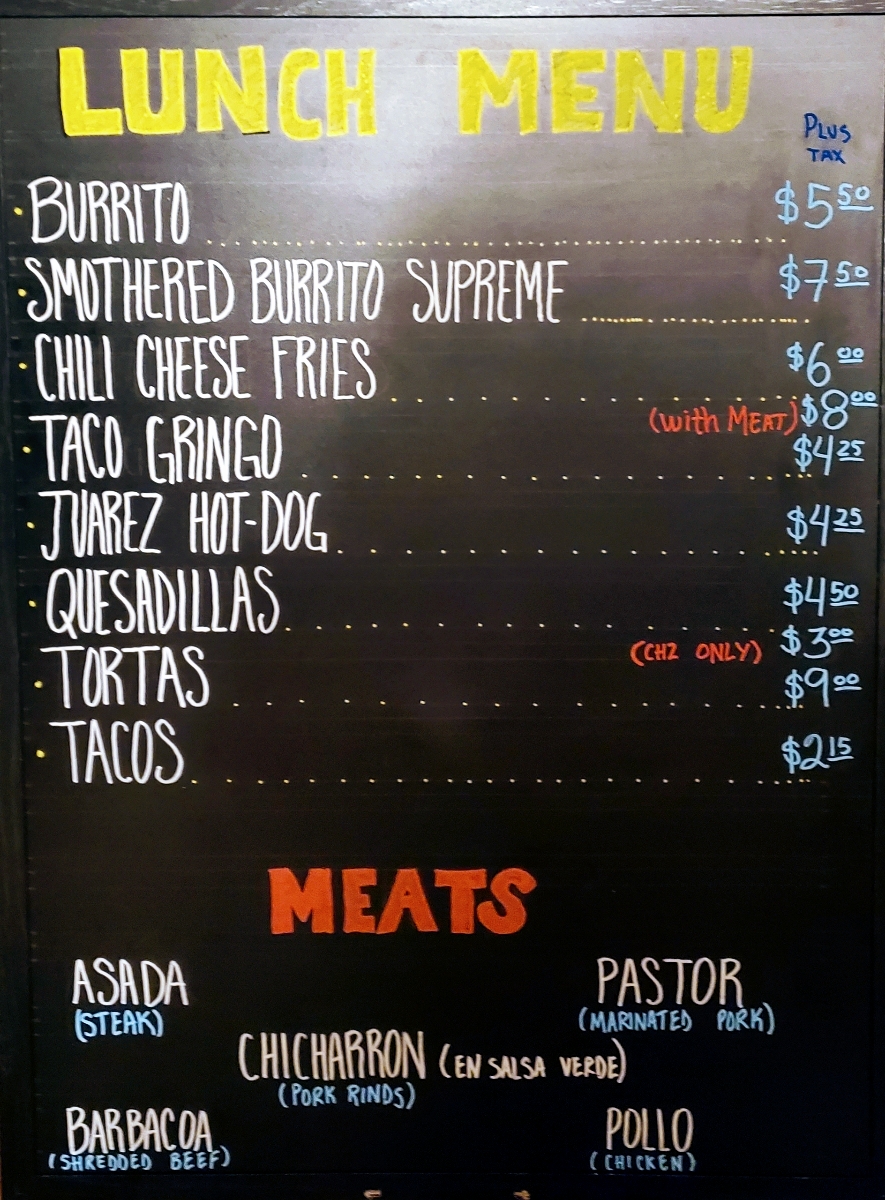 LUNCH MENU
PLUS
TAX
• BURRITO $5.50
• SMOTHERED BURRITO SUPREME $7.50
• CHILI CHEESE FRIES $6.00
(with MEAT) $8.00
• TACO GRINGO $4.25
• JUAREZ HOT-DOG $4.25
• QUESADILLAS $4.50
(CHZ ONLY) $3.00
• TORTAS $9.00
• TACOS $2.15
MEATS
ASADA PASTOR
(STEAK) (MARINATED PORK)
CHICHARRON (EN SALSA VERDE)
(PORK RINDS)
BARBACOA POLLO
(SHREDDED BEEF) (CHICKEN)